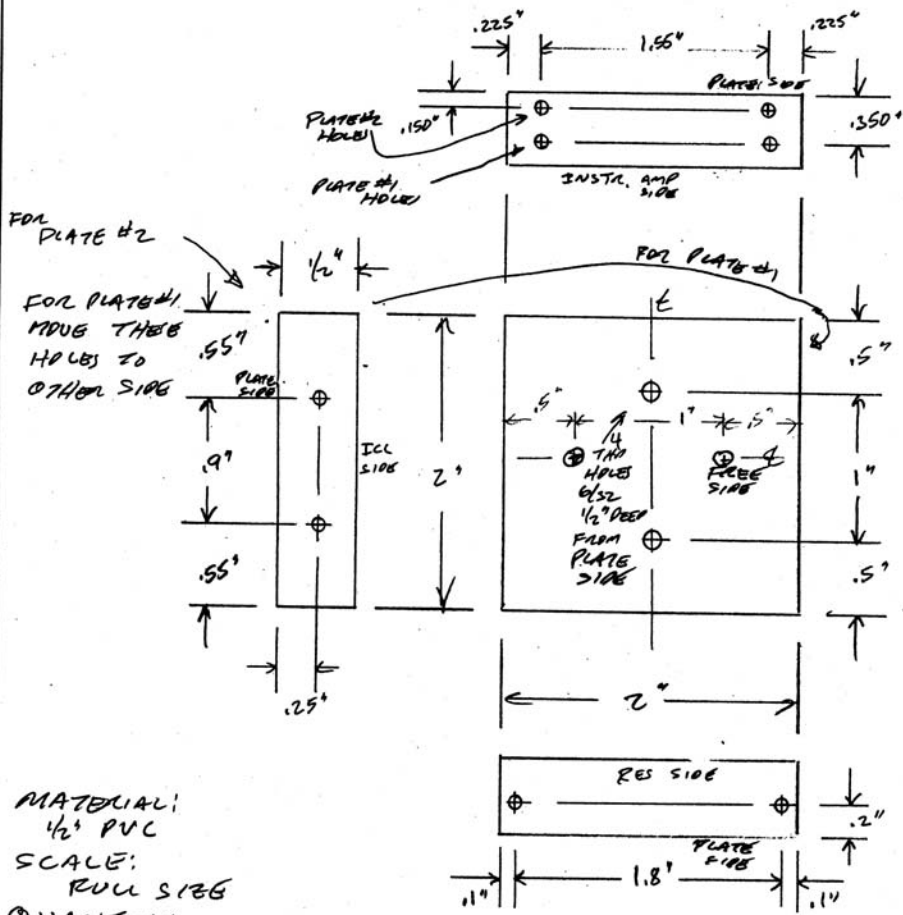 .225"
1.55"
.225"
PLATE SIDE
PLATE #2
HOLES
.150"
.350"
PLATE #1
HOLES
INSTR. AMP
SIDE
FOR
PLATE #2
1/2"
FOR PLATE #1
FOR PLATE #1
MOVE THESE
HOLES TO
OTHER SIDE
.55"
PLATE
SIDE
.9"
ICL
SIDE
2"
.55"
.25"
.5"
.5"
1"
.5"
4
TAP
HOLES
6/32
1/2" DEEP
FROM
PLATE
SIDE
FREE
SIDE
1"
.5"
2"
RES SIDE
PLATE
SIDE
.2"
.1"
1.8"
.1"
MATERIAL:
1/2" PVC
SCALE:
FULL SIZE